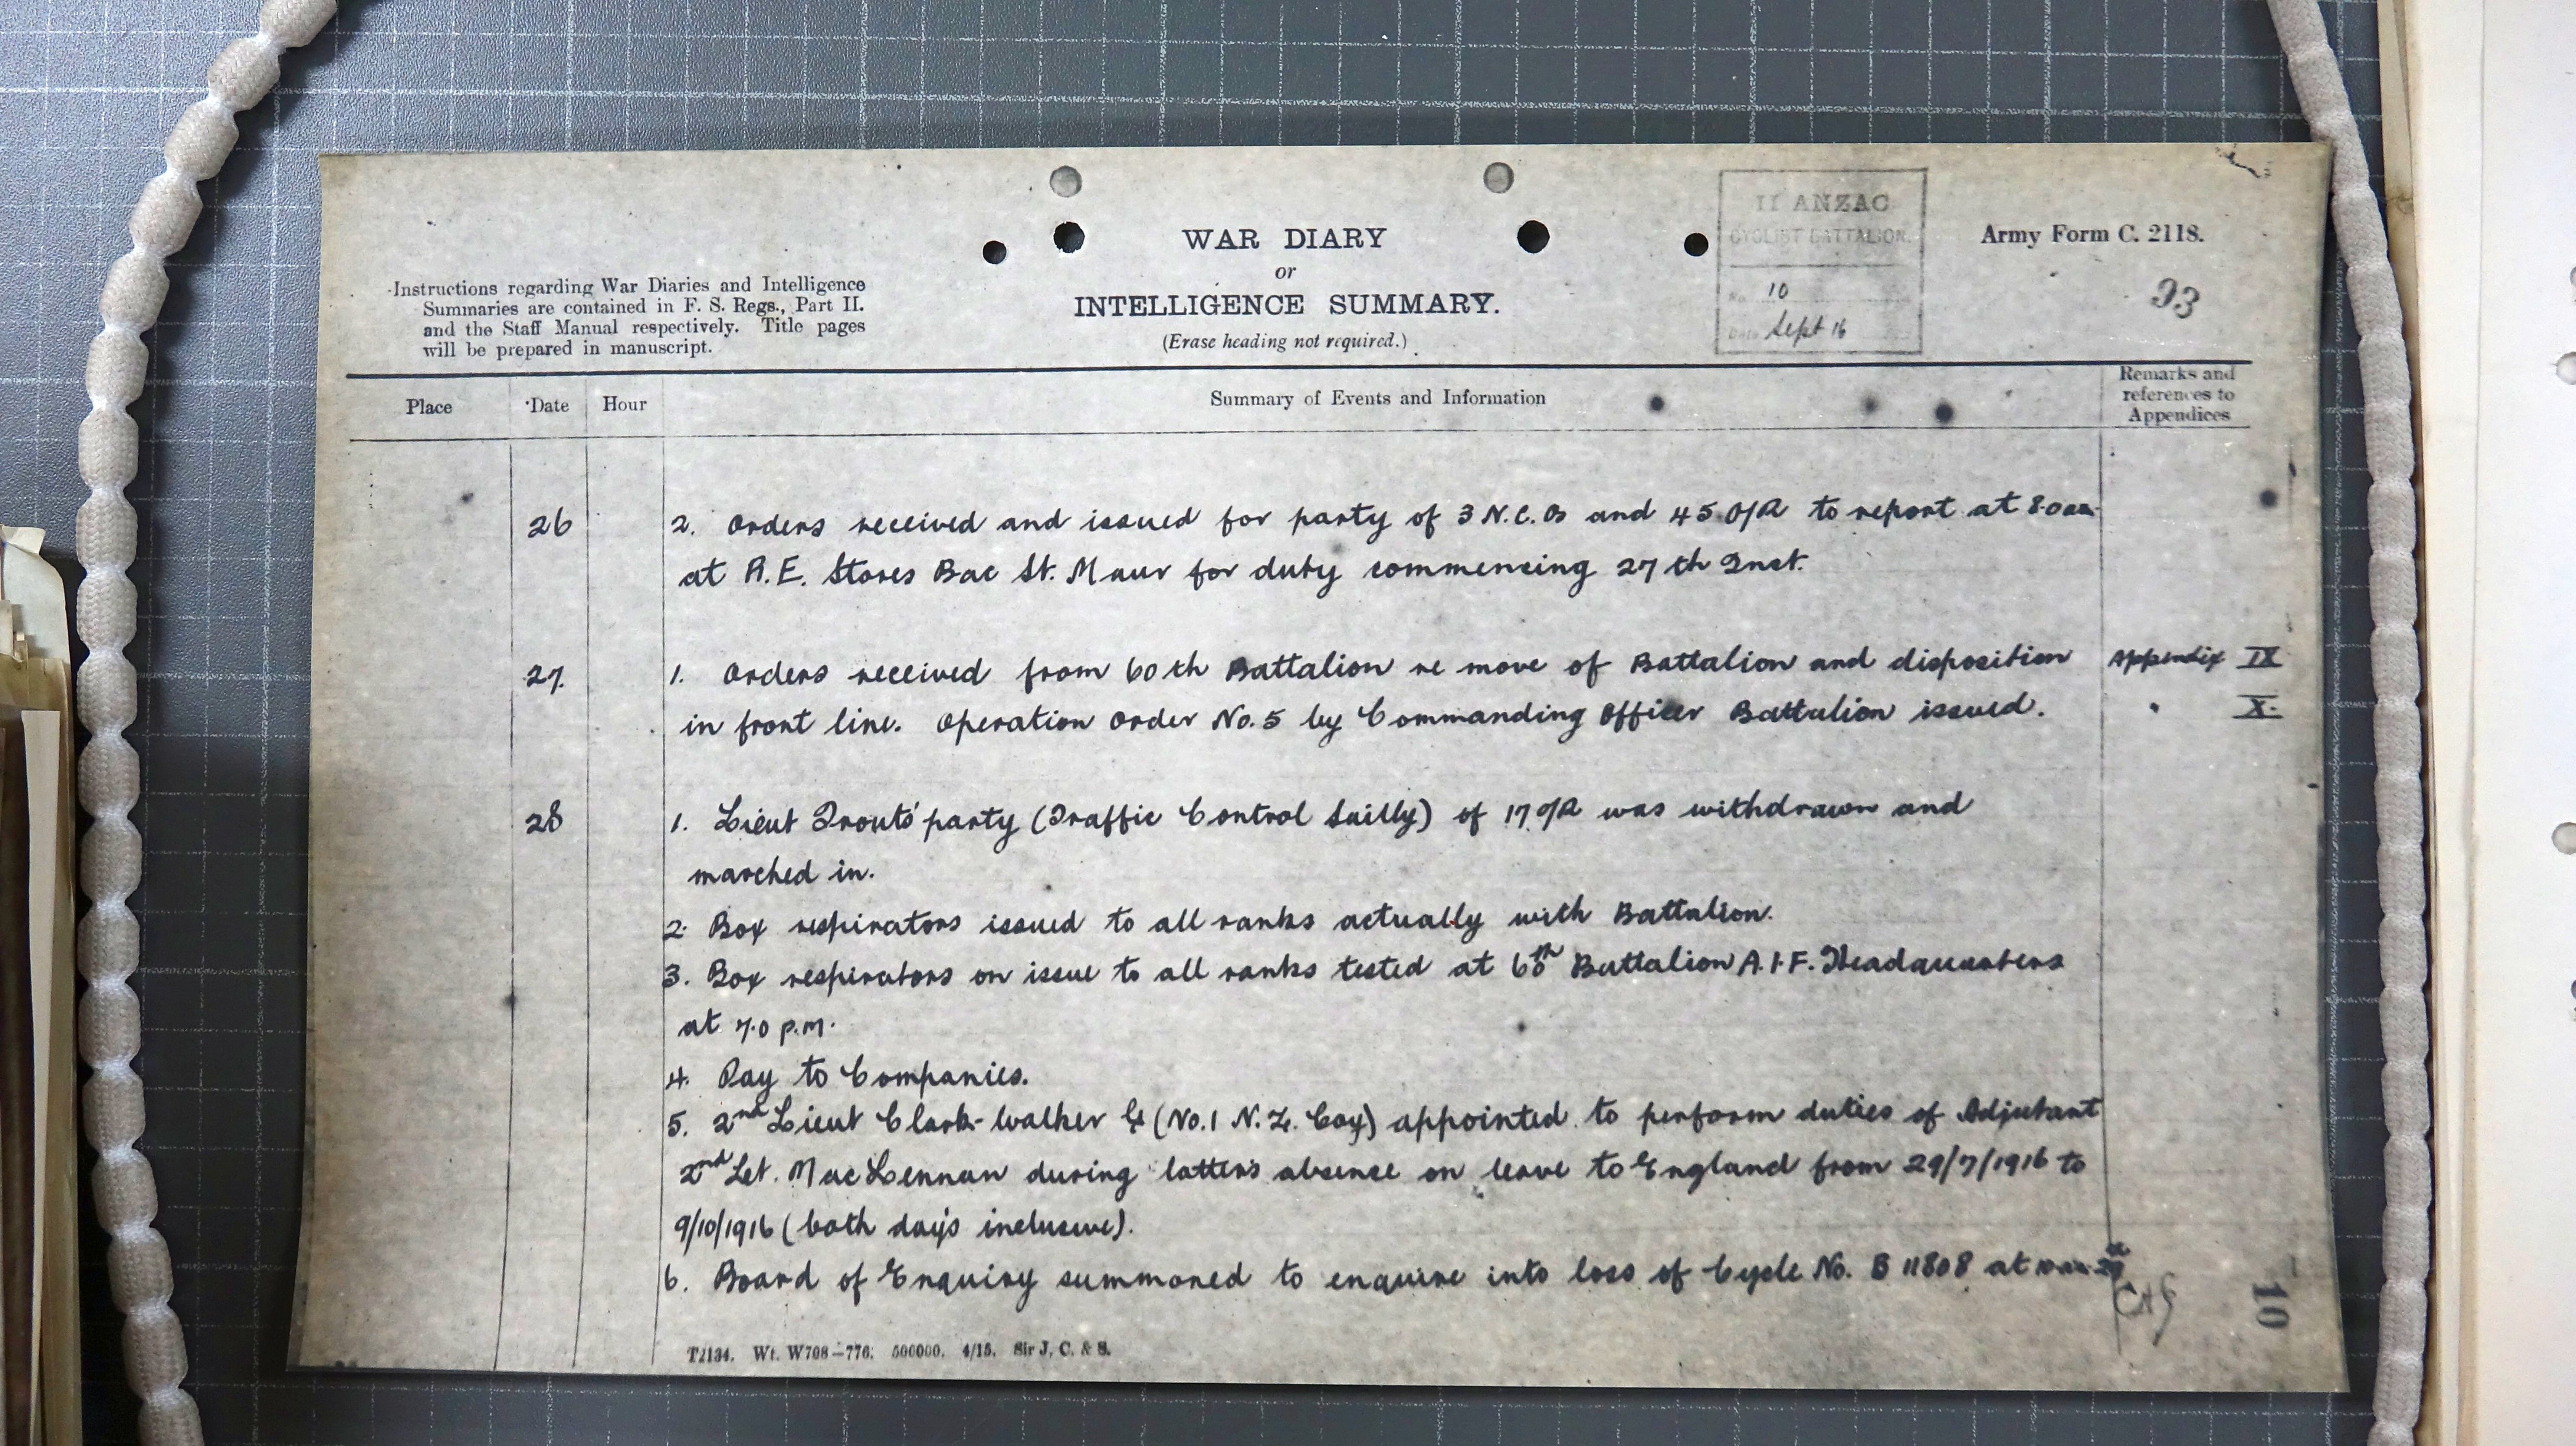 II ANZAC
CYCLIST BATTALION.
No. 10
Date Sept 16
Army Form C. 2118.
93
WAR DIARY
or
INTELLIGENCE SUMMARY.
(Erase heading not required.)
Instructions regarding War Diaries and Intelligence
Summaries are contained in F. S. Regs., Part II.
and the Staff Manual respectively. Title pages
will be prepared in manuscript.
Place Date Hour Summary of Events and Information Remarks and
references to
Appendices
26 2. Orders received and issued for party of 3 N.C.Os and 45 O/R to report at 8.0 am
at R.E. Stores Bac St. Maur for duty commencing 27th Inst.
27. 1. Orders received from 60th Battalion re move of Battalion and disposition Appendix IX
in front line. Operation Order No. 5 by Commanding Officer Battalion issued. " X.
28 1. Lieut Trouts' party (Traffic Control Sailly) of 17 O/R was withdrawn and
marched in.
2. Box respirators issued to all ranks actually with Battalion.
3. Box respirators on issue to all ranks tested at 60th Battalion A.I.F. Headquarters
at 7.0 p.m.
4. Pay to Companies.
5. 2nd Lieut Clark-Walker G (No. 1 N.Z. Coy) appointed to perform duties of Adjutant
2nd Lt. MacLennan during latter's absence on leave to England from 29/7/1916 to
9/10/1916 (both days inclusive).
6. Board of Enquiry summoned to enquire into loss of Cycle No. B 11808 at 10 am 29th
10
T2134. Wt. W708—776. 500000. 4/15. Sir J. C. & S.